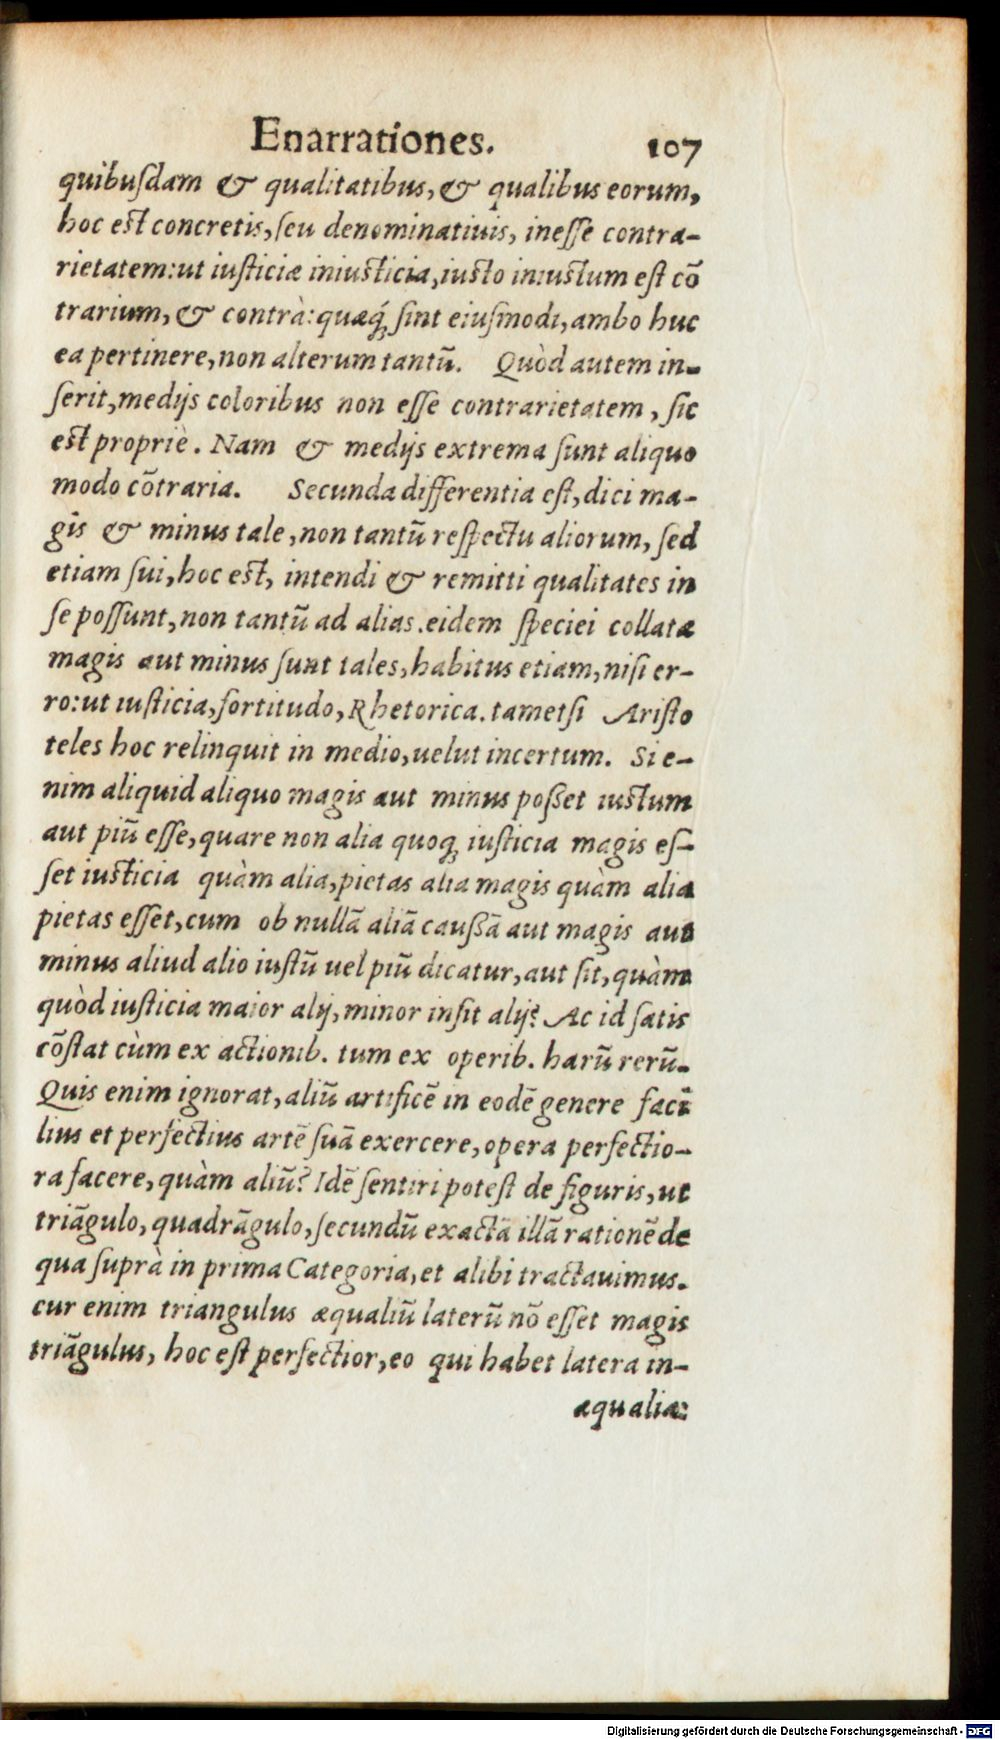 Enarrationes. 107
quibusdam & qualitatibus, & qualibus eorum,
hoc est concretis, seu denominatiuis, inesse contra-
rietatem: ut iusticiæ iniusticia, iusto iniustum est cõ
trarium, & contrà: quæq́ꝫ sint eiusmodi, ambo huc
ea pertinere, non alterum tantũ. Quòd autem in-
serit, medijs coloribus non esse contrarietatem, sic
est propriè. Nam & medijs extrema sunt aliquo
modo cõtraria. Secunda differentia est, dici ma-
gis & minus tale, non tantũ respectu aliorum, sed
etiam sui, hoc est, intendi & remitti qualitates in
se possunt, non tantũ ad alias eidem speciei collatæ
magis aut minus sunt tales, habitus etiam, nisi er-
ro: ut iusticia, fortitudo, Rhetorica. tametsi Aristo
teles hoc relinquit in medio, uelut incertum. Si e-
nim aliquid aliquo magis aut minus posset iustum
aut piũ esse, quare non alia quoqꝫ iusticia magis es-
set iusticia quàm alia, pietas alia magis quàm alia
pietas esset, cum ob nullã aliã caussã aut magis aut
minus aliud alio iustũ uel piũ dicatur, aut sit, quàm
quòd iusticia maior alij, minor insit alij? Ac id satis
cõstat cùm ex actionib. tum ex operib. harũ rerũ.
Quis enim ignorat, aliũ artificẽ in eodẽ genere faci
lius et perfectius artẽ suã exercere, opera perfectio-
ra facere, quàm aliũ? Idẽ sentiri potest de figuris, ut
triãgulo, quadrãgulo, secundũ exactã illã rationẽ de
qua suprà in prima Categoria, et alibi tractauimus.
cur enim triangulus æqualiũ laterũ nõ esset magis
triãgulus, hoc est perfectior, eo qui habet latera in-
æqualia:
Digitalisierung gefördert durch die Deutsche Forschungsgemeinschaft - DFG